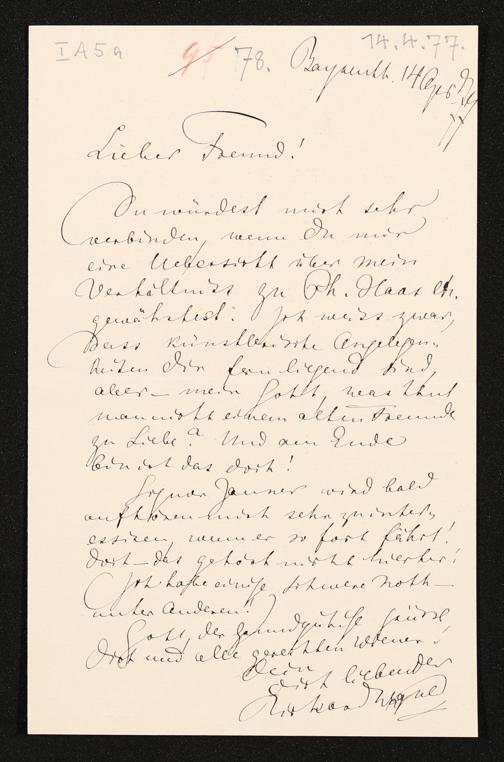 I A 5 a 95 78. 14.4.77.
Bayreuth. 14 Apr.
77
Lieber Freund!
Du würdest mich sehr
verbinden, wenn Du mir
eine Uebersicht über mein
Verhältniss zu Ph. Haas etc.
gewährtest. Ich weiss zwar,
dass künstlerische Angelegen-
heiten Dir fern liegend sind,
aber – mein Gott, was thut
man nicht einem alten Freunde
zu Liebe? Und am Ende
bin ich das doch!
Signor Jauner wird bald
aufhören mich sehr zu inter-
essiren, wenn er so fort fährt!
Doch – das gehört nicht hierher!
(Ich habe einige schwere Noth –
unter Anderen!)
Gott, der grundgütige,
Dich und alle gerechten Wiener!
Dein
Dich liebender
Richard Wagner